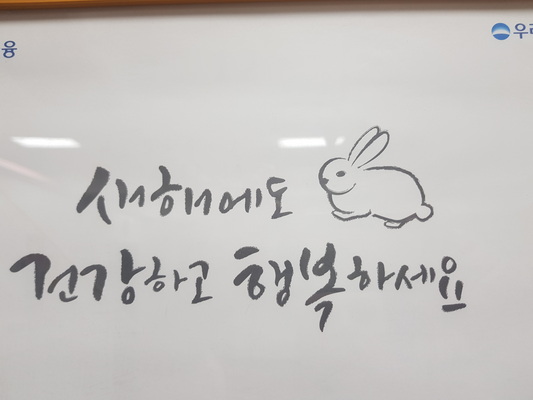 융
우리
새해에도
건강하고 행복하세요